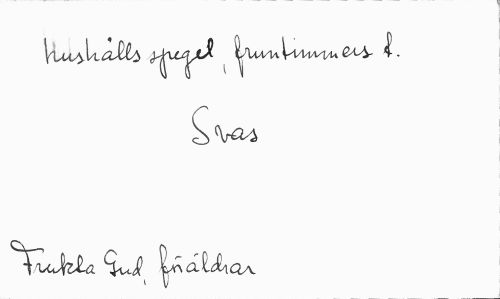 Hushålls spegel, fruntimmers t.
Svas
Frukta Gud, föräldrar